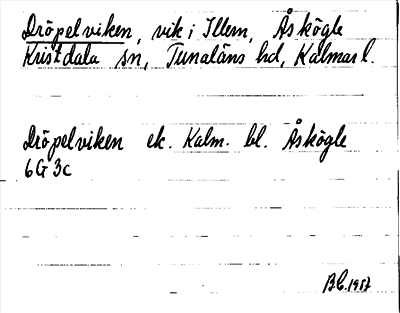 Dröpelviken, vik i Illern, Åskögle
Kristdala sn, Tunaläns hd, Kalmar l.
Dröpelviken ek. Kalm. bl. Åskögle
6G 3c